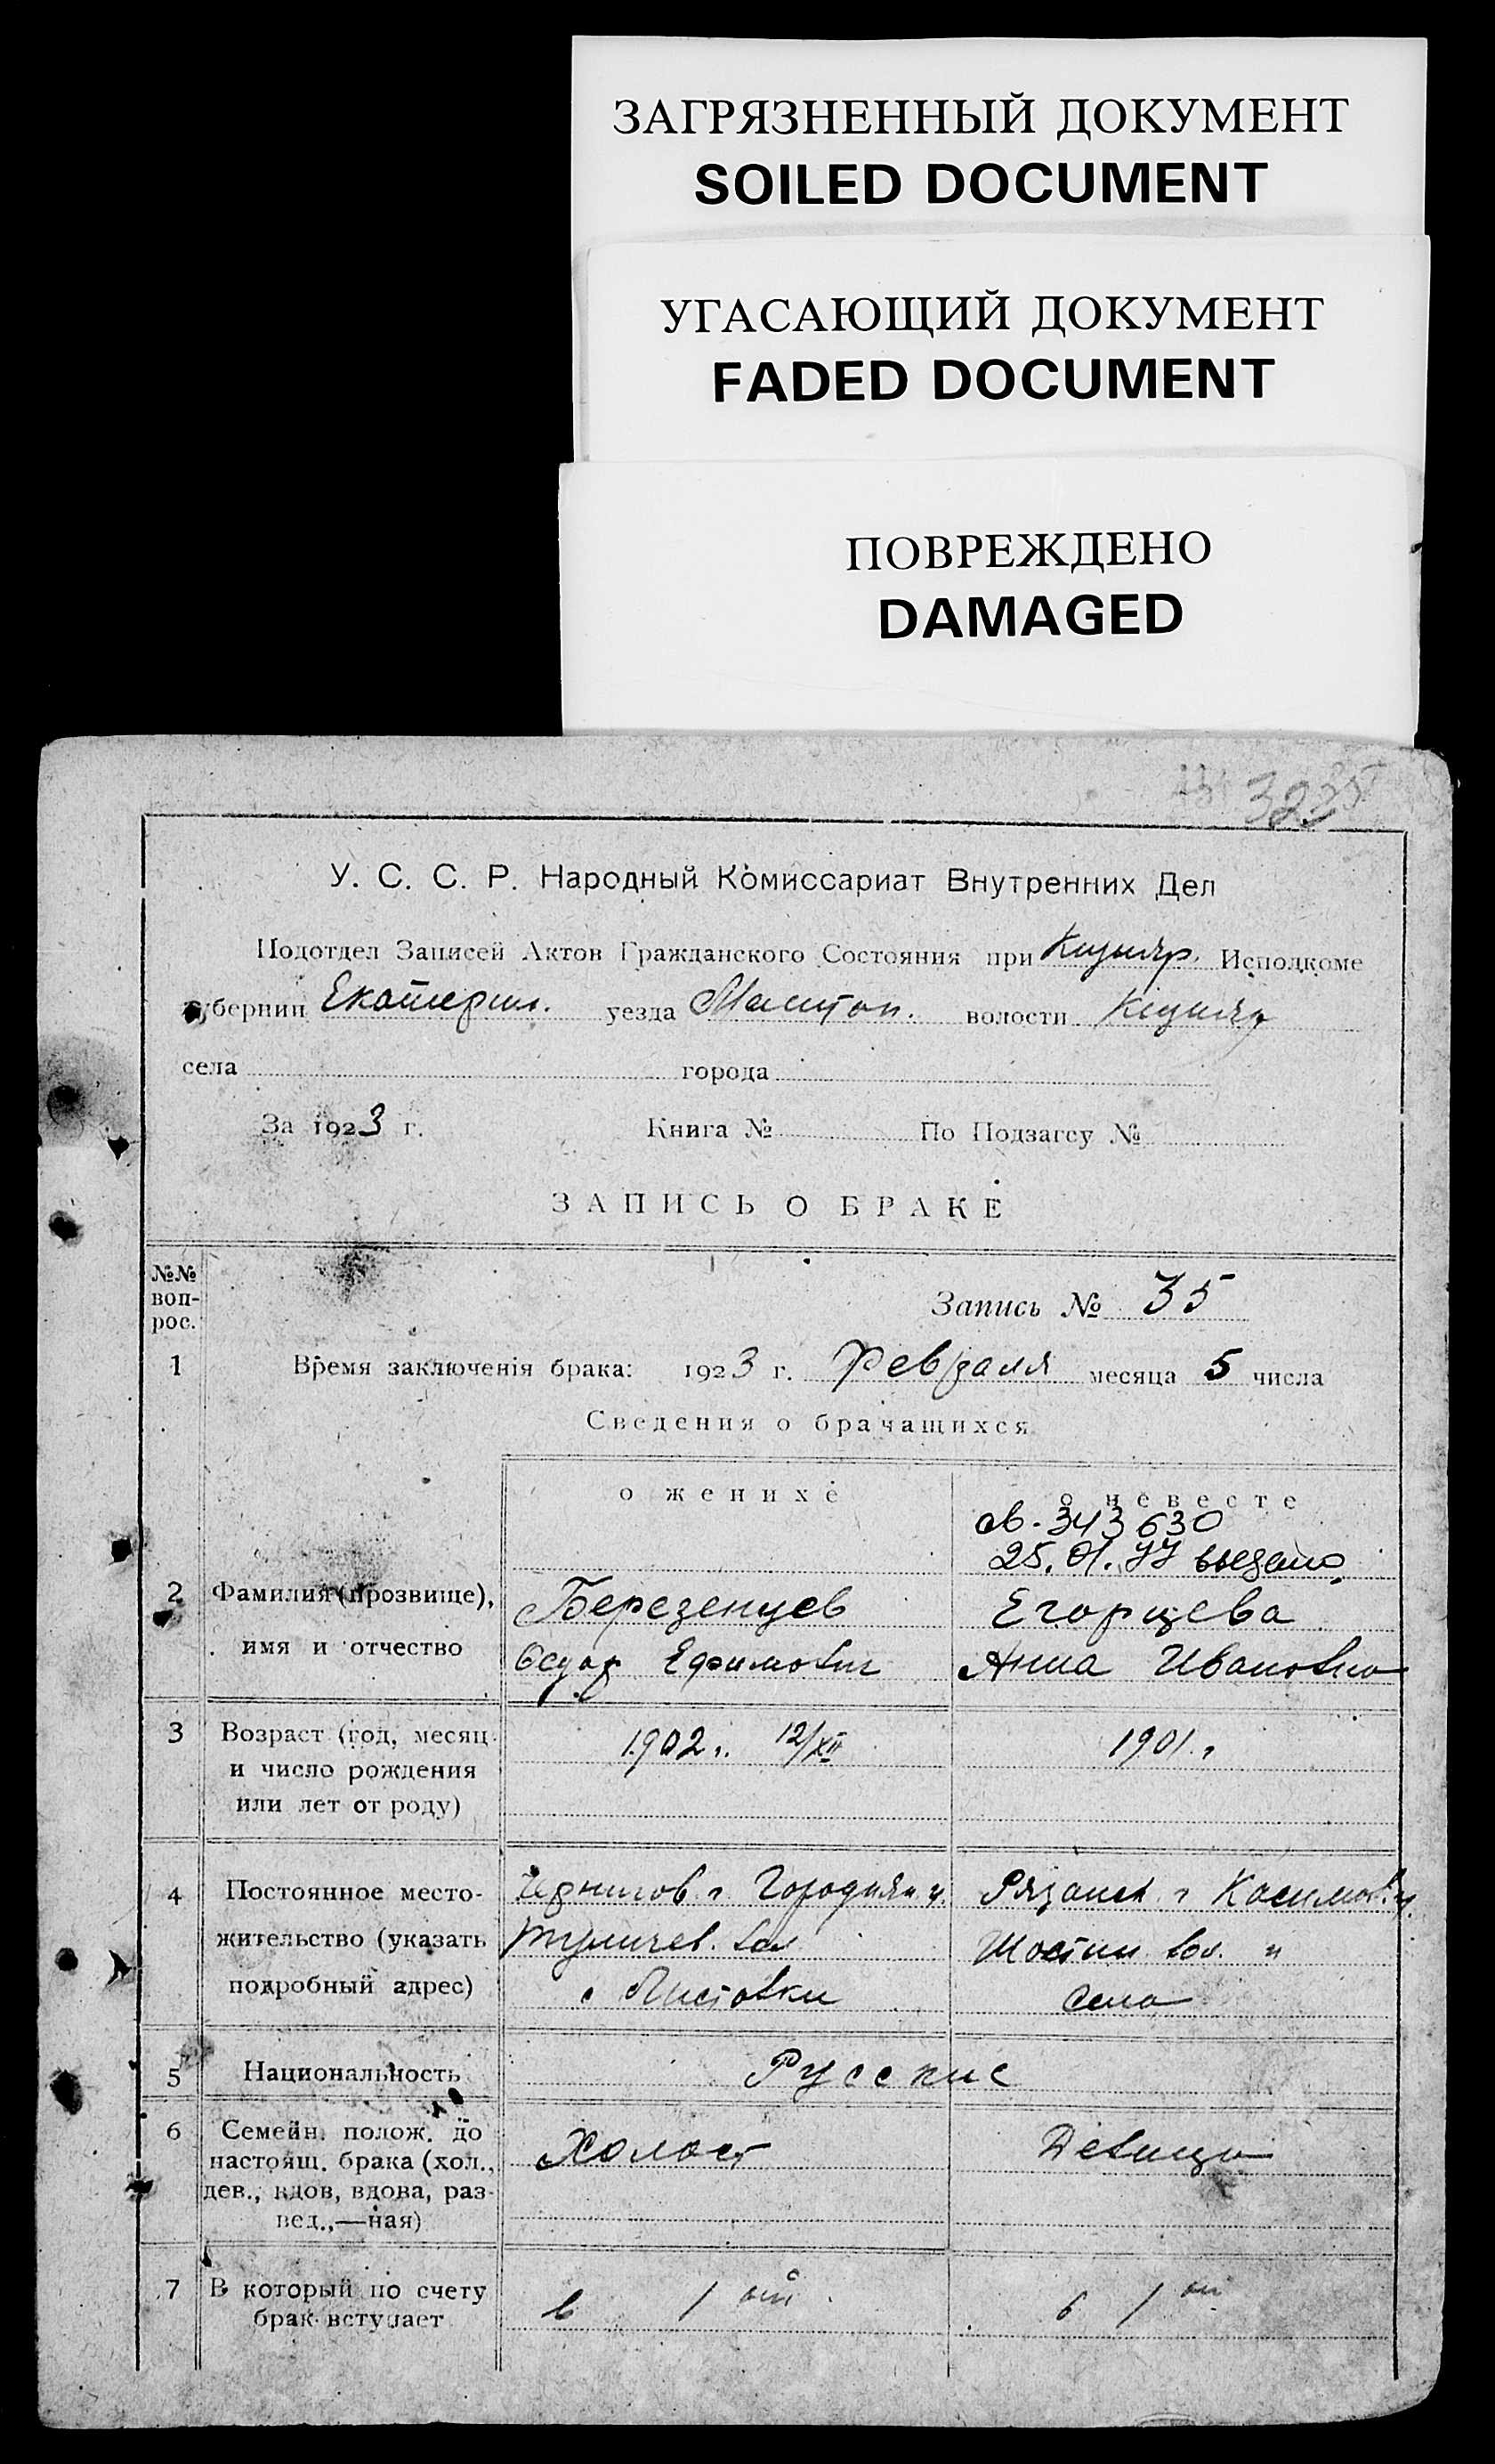 ЗАГРЯЗНЕННЫЙ ДОКУМЕНТ
SOILED DOCUMENT
УГАСАЮЩИЙ ДОКУМЕНТ
FADED DOCUMENT
ПОВРЕЖДЕНО
DAMAGED
У. С. С. Р. Народный Комиссариат Внутренних Дел
Подотдел Записей Актов Гражданского Состояния при Исполкоме
губернии Екатерин. уезда волости
села города
За 1923 г. Книга № По Подзагсу №
ЗАПИСЬ О БРАКЕ
№№ воп-
рос.
Запись № 35
1 Время заключенія брака: 1923 г. Февраля месяца 5 числа
Сведения о брачащихся
о женихе о невесте
св. 343630
25.01.77 выдано
2 Фамилия (прозвище), Березенцев Егорцева
имя и отчество Ефимович Анна Ивановна
3 Возраст (год, месяц 1902 г. 12/XII 1901 г
и число рождения
или лет от роду)
4 Постоянное место- Чернигов. г Городнян у. Рязанск. г Касимов. у.
жительство (указать вол Шостин вол. и
подробный адрес) с Листовки село
5 Национальность Русские
6 Семейн. полож. до Холост Девица
настоящ. брака (хол.,
дев., вдов, вдова, раз-
вед.,—ная)
7 В который по счету в 1 ый в 1 ый
брак вступает